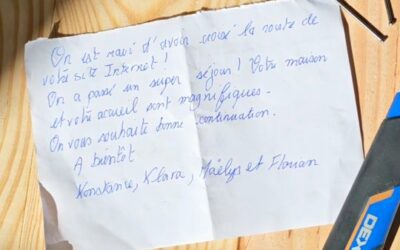 On est ravi d'avoir croisé la route de
votre site Internet !
On a passé un super séjour ! Votre maison
et votre accueil sont magnifiques.
On vous souhaite bonne continuation.
A bientôt
Konstance, Klara, Maëlys et Florian
DEX